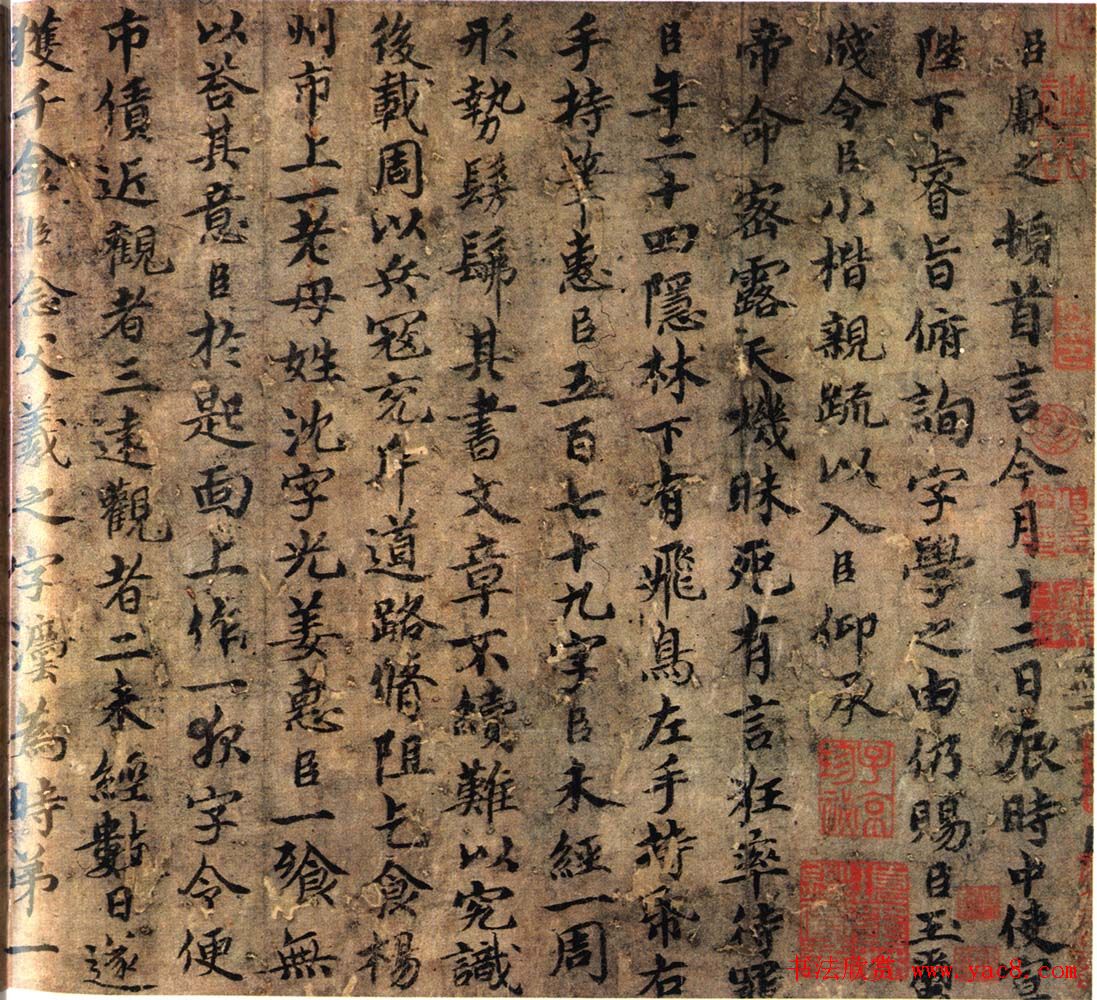 臣獻之頓首言今月十三日辰時中使宣
陛下睿旨俯詢字學之由仍賜臣玉
成令臣小楷親疏以入臣仰承
帝命密露天機昧死有言言狂率待罪
臣年二十四隱林下有飛鳥左手持帋右
手持筆惠臣五百七十九字臣未經一周
形勢髣髴其書文章不續難以究識
後載周以兵寇充斥道路脩阻乞食楊
州市上一老母姓沈字光姜惠臣一飡無
以荅其意臣於匙面上作一夜字令便
市債近觀者三遠觀者二未經數日遂
獲千金臣念父羲之字灋為時弟一
书法欣赏 www.yac8.com